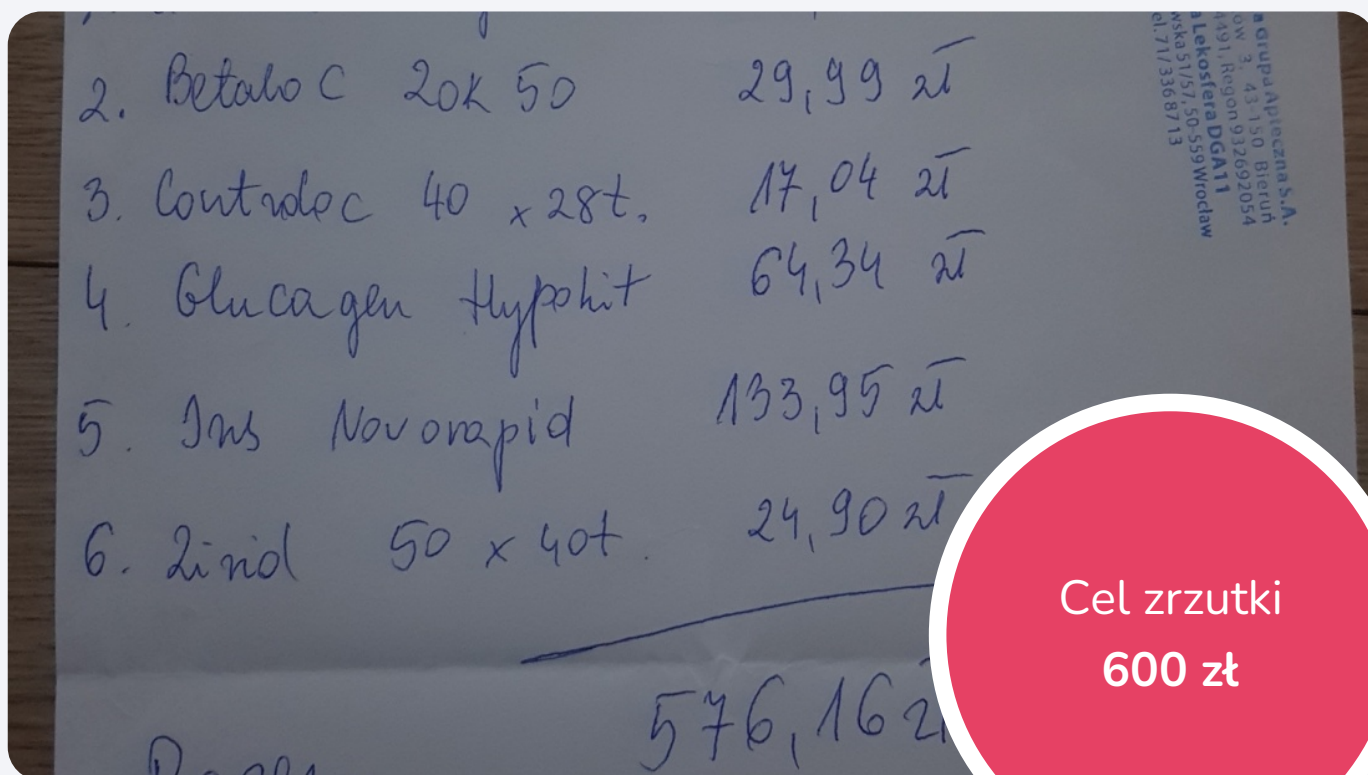 2. Betaloc ZOK 50 29,99 zł
3. Controloc 40 x 28t. 17,04 zł
4. Glucagen Hypokit 64,34 zł
5. Ins Novorapid 133,95 zł
6. 50 x 40t. 24,90 zł
576,16 zł
Grupa Apteczna S.A.
3, 43-150 Bieruń
4491, Regon 932692054
Lekosfera DGA11
wska 51/57, 50-559 Wrocław
el. 71/336 87 13
Cel zrzutki
600 zł